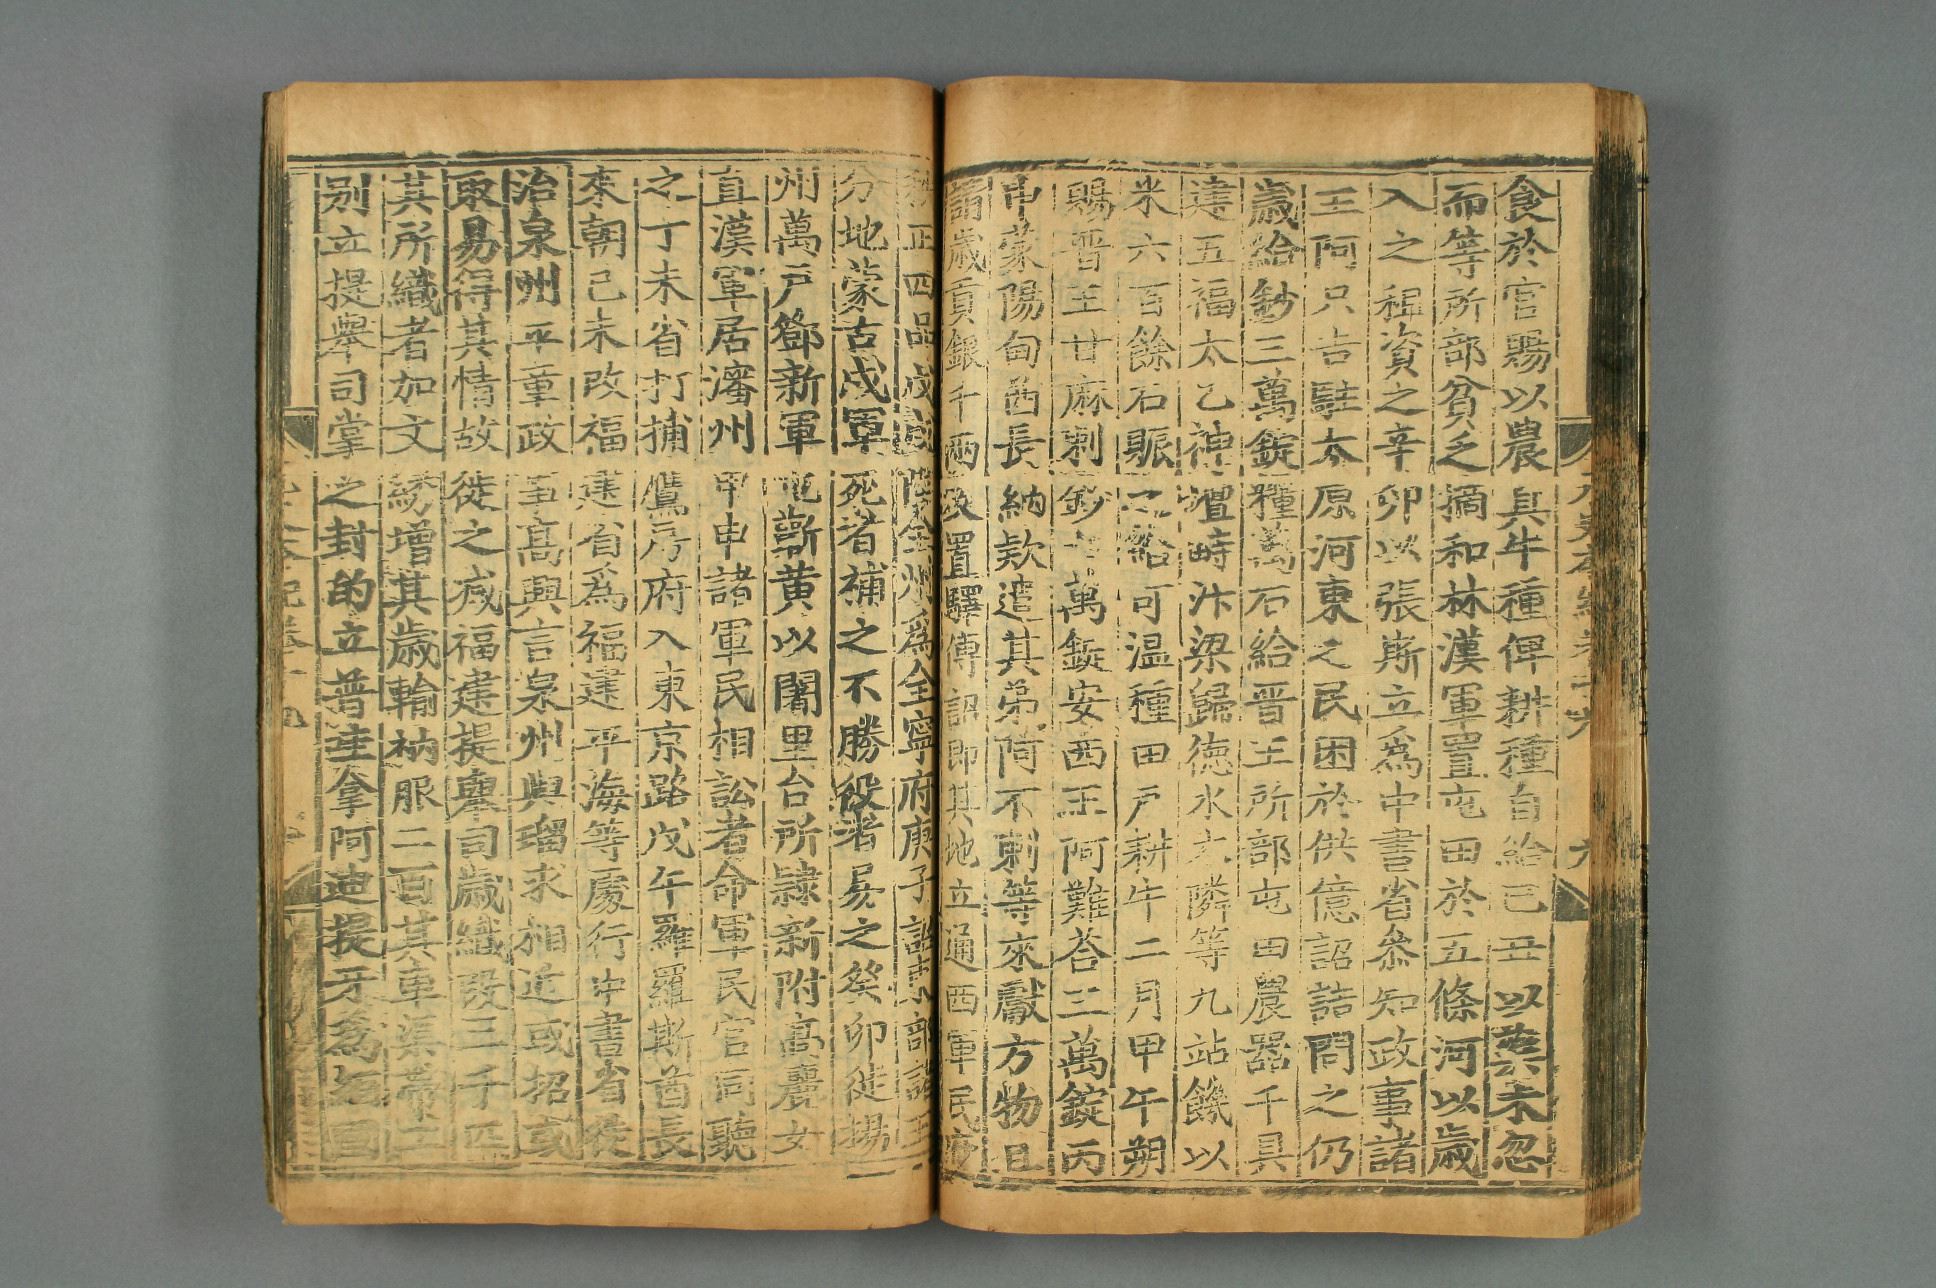 食於官賜以農具牛種俾耕種自給己丑以芸未忽
而等所部貧乏摘和林漢軍置屯田於五條河以歲
入之租資之辛卯以張斯立為中書省參知政事諸
王阿只吉駐太原河東之民困於供億詔詰問之仍
歲給鈔三萬錠糧萬石給晋王所部屯田農器千具
建五福太乙神壇畤汴梁歸德水九隣等九站饑以
米六百餘石賑之給可温種田戶耕牛二月甲午朔
賜晋王甘麻剌鈔七萬錠安西王阿難荅三萬錠丙
申蒙陽甸酋長納欵遣其弟阿不剌等來獻方物且
請歲貢銀千兩及置驛傳詔即其地立通西軍民府
秩正四品戊戌陞全州為全寧府庚子詔東部諸王
分地蒙古戍軍死者補之不勝役者易之癸卯徙揚
州萬戶鄧新軍屯蘄黄以闍里台所隷新附高麗女
直漢軍居瀋州甲申諸軍民相訟者命軍民官同聽
之丁未省打捕鷹房府入東京路戊午羅羅斯酋長
來朝己未改福建省為福建平海等處行中書省徙
治泉州平章政事高興言泉州與瑠求相近或招或
取易得其情故徙之减福建提舉司歲織段三千匹
其所織者加文綉增其歲輸衲服二百其車渠帶工
別立提舉司掌之封的立普哇拿阿迪提牙為緬國